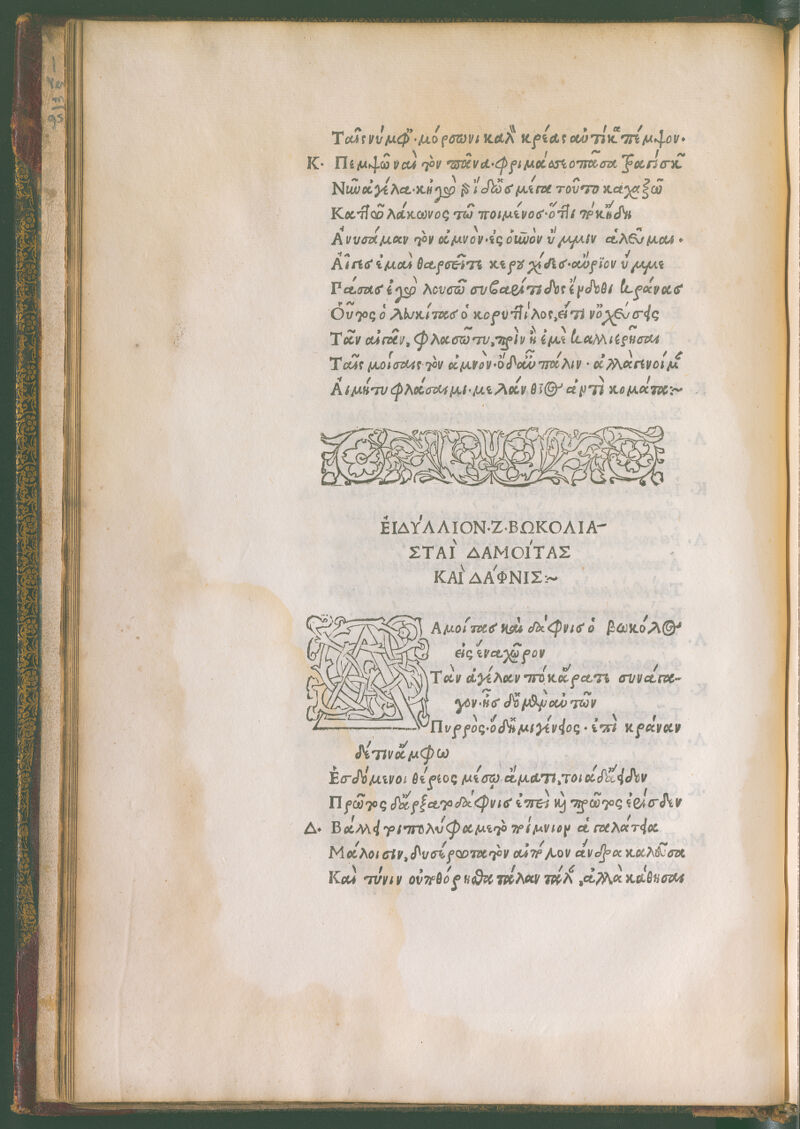 Ταῖς νύμφ'· μόρσωνι καλὸ κρέας αὐτίκα πέμψον·
Κ· Πεμψῶ ναὶ τὸν πᾶνα· φριμάσσεο πᾶσα τραγίσκων
Νῦν ἀγέλα· κἠγὼ γὰρ ἴδ' ὡς μέγα τοῦτο καχαξῶ
Καττῶ λάκωνος τῶ ποιμένος· ὅττι ποκ' ἤδη
Ἀνυσάμαν τὸν ἀμνόν· ἐς οὐνὸν ὔμμιν ἁλεῦμαι·
Αἶγες ἐμαὶ θαρσεῖτε κερουχίδες· αὔριον ὔμμε
Πάσας ἐγὼ λουσῶ συβαρίτιδος ἔνδοθι κράνας
Οὗτος ὁ λευκίτας ὁ κορυπτίλος, εἴ τιν' ὀχεύσῃς
Τᾶν αἰγᾶν, φλασῶ τυ, πρὶν ἢ ἐμὲ καλλιερῆσαι
Ταῖς μοίσαις τὸν ἀμνόν· ὁ δ' αὖ πάλιν· ἀλλὰ γενοίμαν
Αἰ μή τυ φλάσαιμι· μελάνθιος ἀντὶ κομάτα:~
ΕἸΔΎΛΛΙΟΝ·Ζ·ΒΩΚΟΛΙΑ-
ΣΤΑῚ ΔΑΜΟΊΤΑΣ
ΚΑῚ ΔΆΦΝΙΣ:~
ΔΑμοίτας καὶ δάφνις ὁ βωκόλος
εἰς ἕνα χῶρον
Τὰν ἀγέλαν πόκ' ἄρατε συνάγα-
γον· ἦς δ' ὁ μὲν αὐτῶν
Πυρρὸς· ὁ δ' ἡμιγένειος· ἐπὶ κράναν
δέ τιν' ἄμφω
Ἑσδόμενοι θέρεος μέσῳ ἄματι, τοιάδ' ἄειδον
Πρᾶτος δ' ἄρξατο δάφνις ἐπεὶ καὶ πρᾶτος ἐρίσδεν
Δ· Βάλλει τοι πολύφαμε τὸ ποίμνιον ἁ γαλάτεια
Μάλοισιν, δυσέρωτα τὸν αἰπόλον ἄνδρα καλεῦσα
Καὶ τύ νιν οὐ ποθόρησθα τάλαν τάλαν, ἀλλὰ κάθησαι